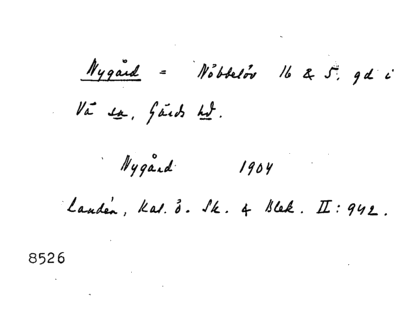 Nygård = Nöbbelöv 16 & 5, gd i
Vä sn, Gärds hd.
Nygård 1904
Landén, Kal. ö. Sk. & Blek. II: 942.
8526